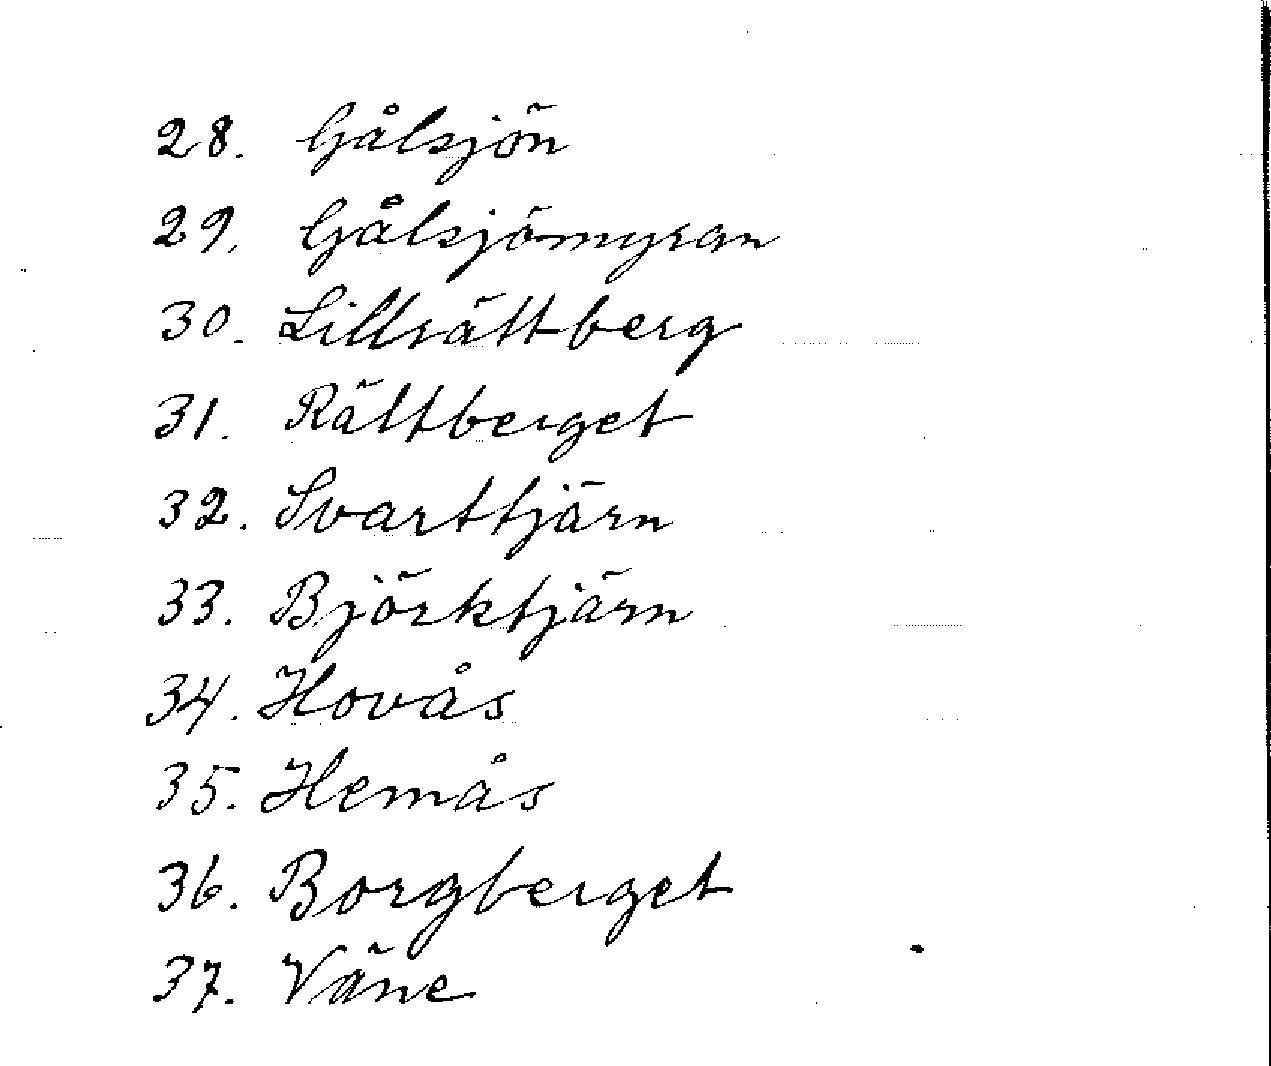 28. Gålsjön
29. Gålsjömyran
30. Lillrättberg
31. Rättberget
32. Svarttjärn
33. Björktjärn
34. Hovås
35. Hemås
36. Borgberget
37. Väne